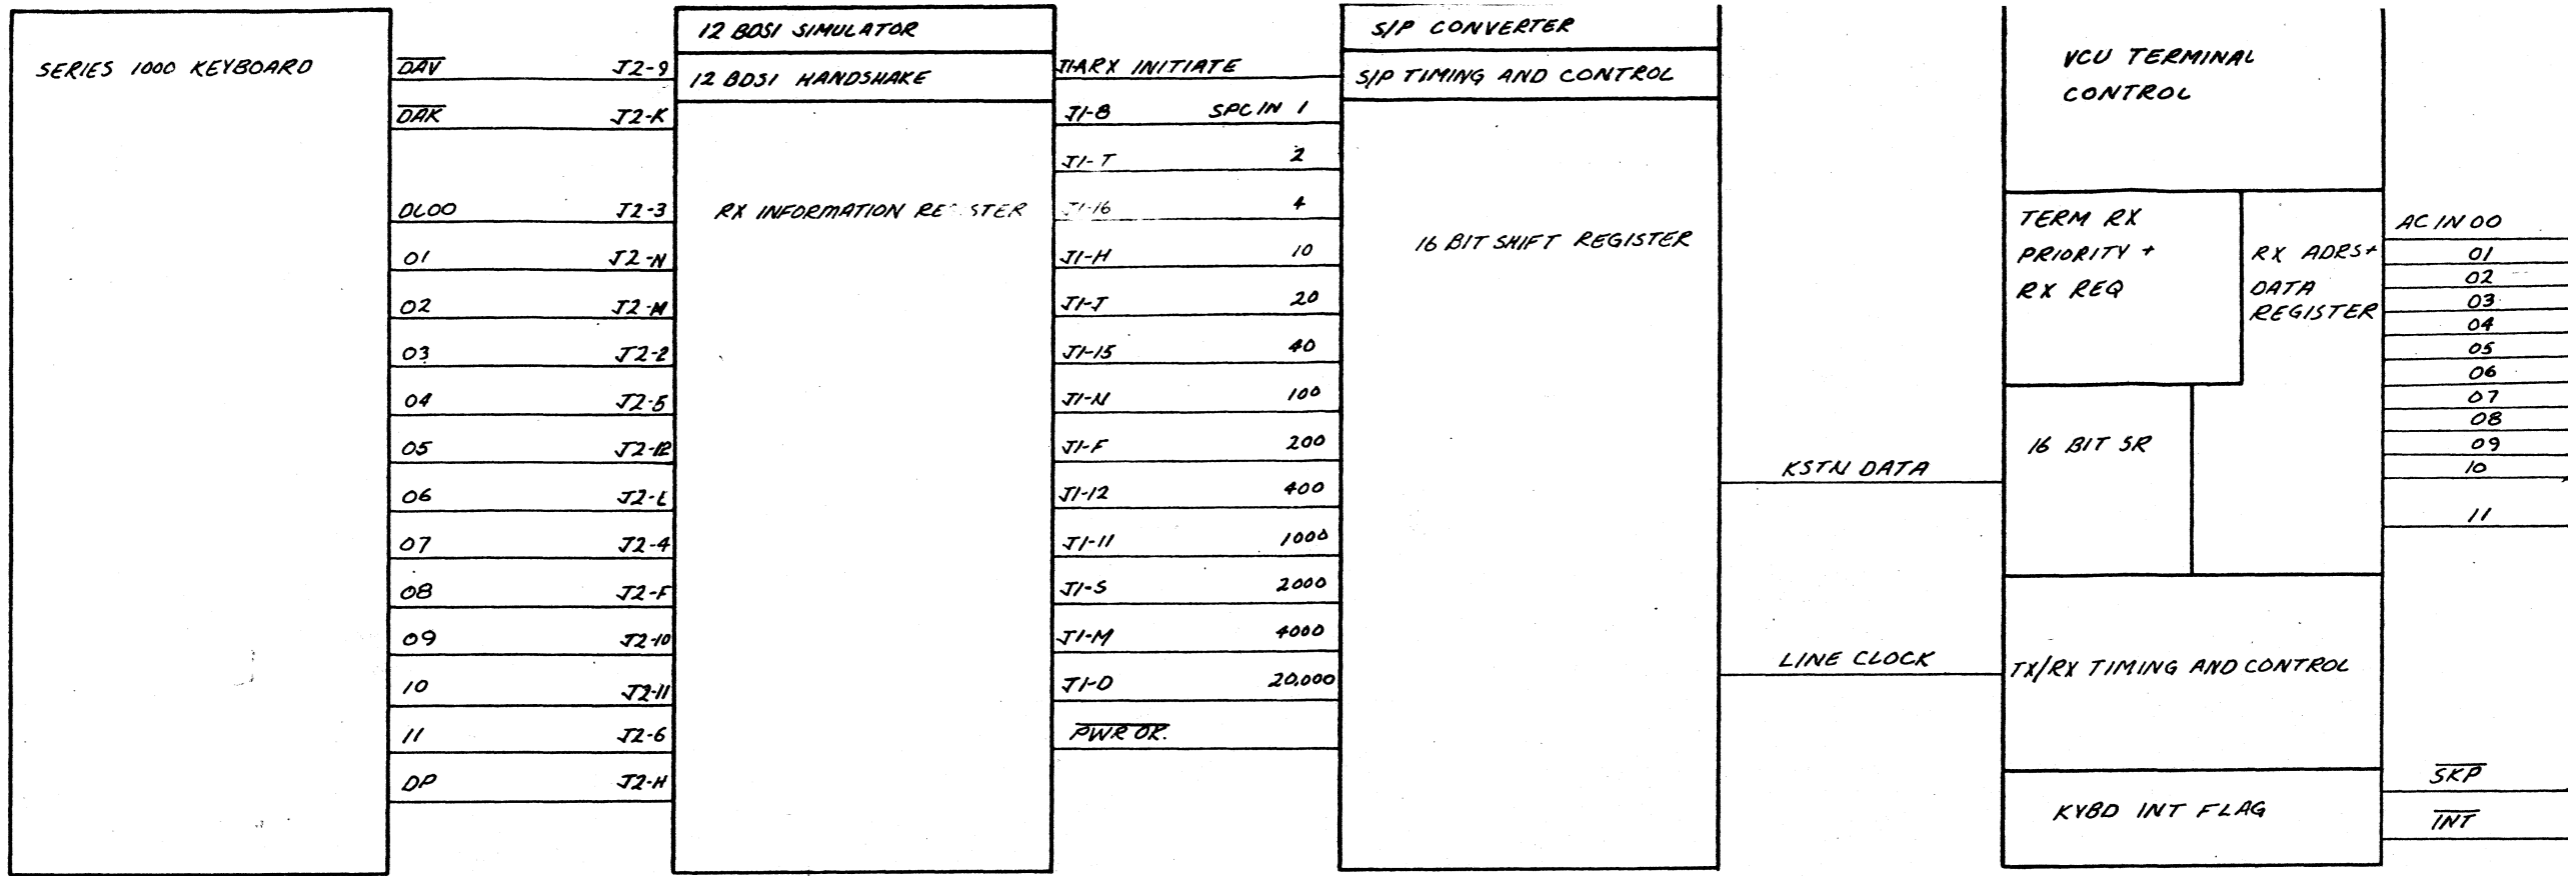 SERIES 1000 KEYBOARD
D̅A̅V̅ J2-9
D̅A̅K̅ J2-K
DL00 J2-3
01 J2-N
02 J2-M
03 J2-2
04 J2-5
05 J2-12
06 J2-L
07 J2-4
08 J2-F
09 J2-10
10 J2-11
11 J2-6
DP J2-H
12 BDSI SIMULATOR
12 BDSI HANDSHAKE
RX INFORMATION
RX INITIATE
J1-8 SPC IN 1
J1-T 2
J1-16 4
J1-H 10
J1-J 20
J1-15 40
J1-N 100
J1-F 200
J1-12 400
J1-11 1000
J1-S 2000
J1-M 4000
J1-D 20,000
P̅W̅R̅ O̅K̅.
S/P CONVERTER
S/P TIMING AND CONTROL
16 BIT SHIFT REGISTER
KSTN DATA
LINE CLOCK
VCU TERMINAL
CONTROL
TERM RX
PRIORITY +
RX REQ
RX ADRS+
DATA
REGISTER
16 BIT SR
TX/RX TIMING AND CONTROL
KYBD INT FLAG
AC IN 00
01
02
03
04
05
06
07
08
09
10
11
S̅K̅P̅
I̅N̅T̅